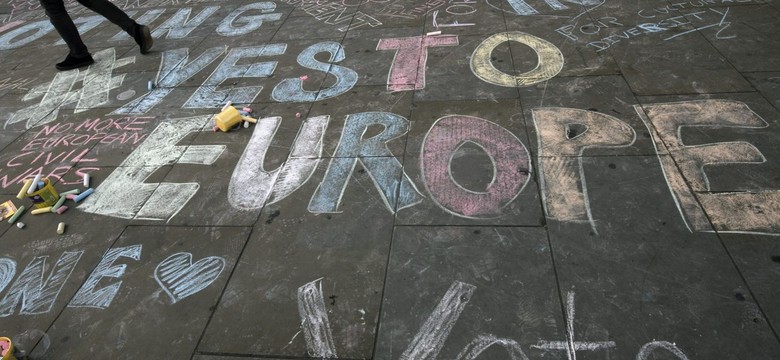 ING
FOR CULTURAL
DIVERSITY
#YES TO
EUROPE
NO MORE
EUROPEAN
CIVIL
WARS
ONE ♥
Vote